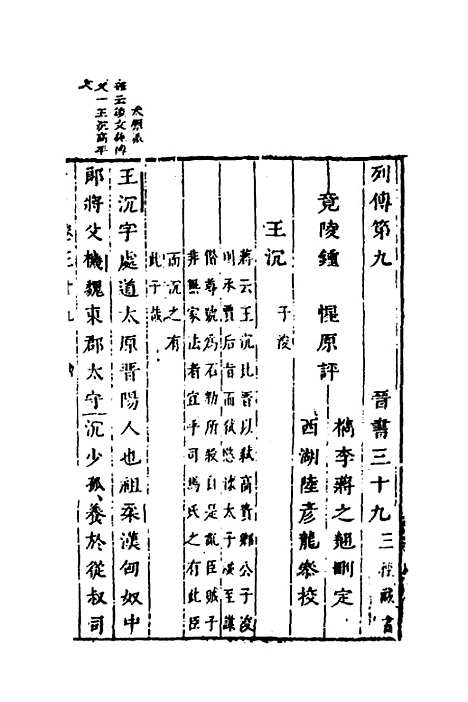 列傳第九　晉書三十九
竟陵鍾　惺原評　檇李蔣之翹刪定
西湖陸彥龍參校
王沉　子浚
蔣云王沉比晉以弒高貴鄉公子浚
則承賈后旨而弒愍懷太子凌至謀
俗尊號為石勒所殺自是亂臣賊子
非無家法者宜乎司馬氏之有此臣
而沉之有
此子哉
王沉字處道太原晉陽人也祖柔漢匈奴中
郎將父機魏東郡太守沉少孤養於從叔司